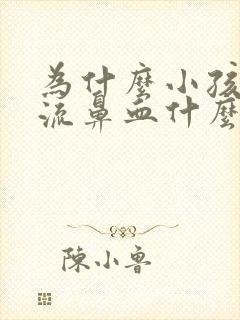 為什麼小孩
流鼻血什麼
陳小魯